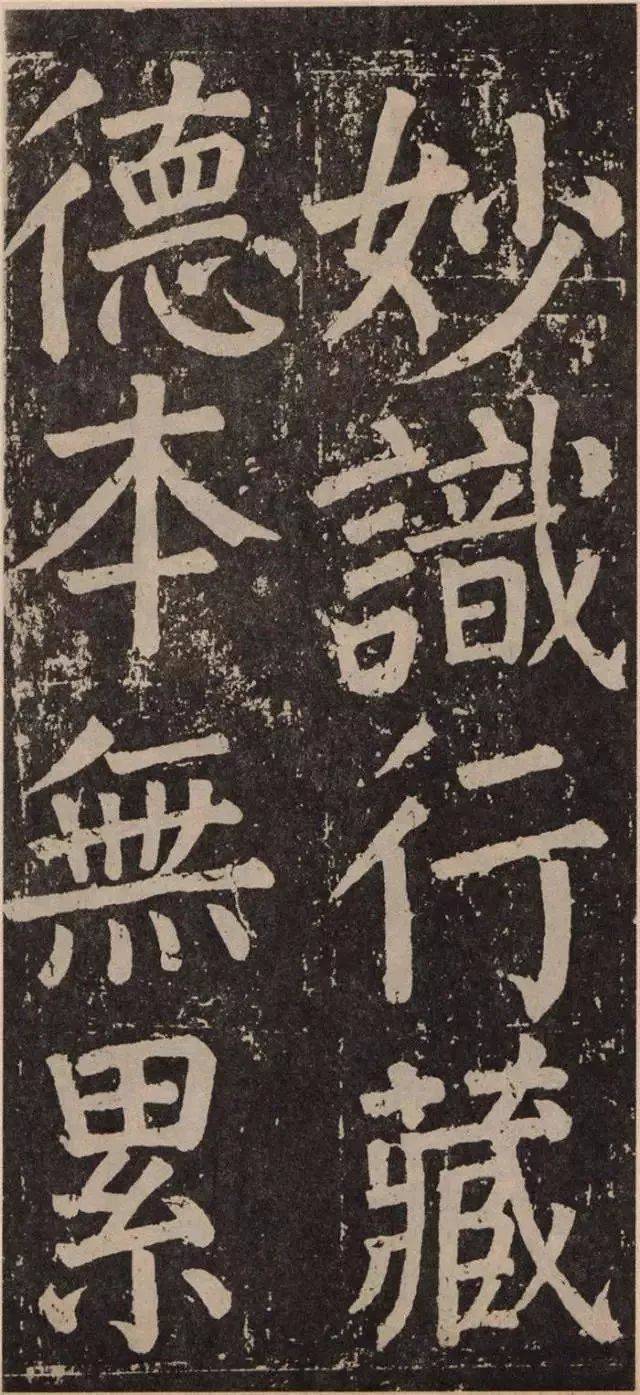 妙識行藏
德本無累